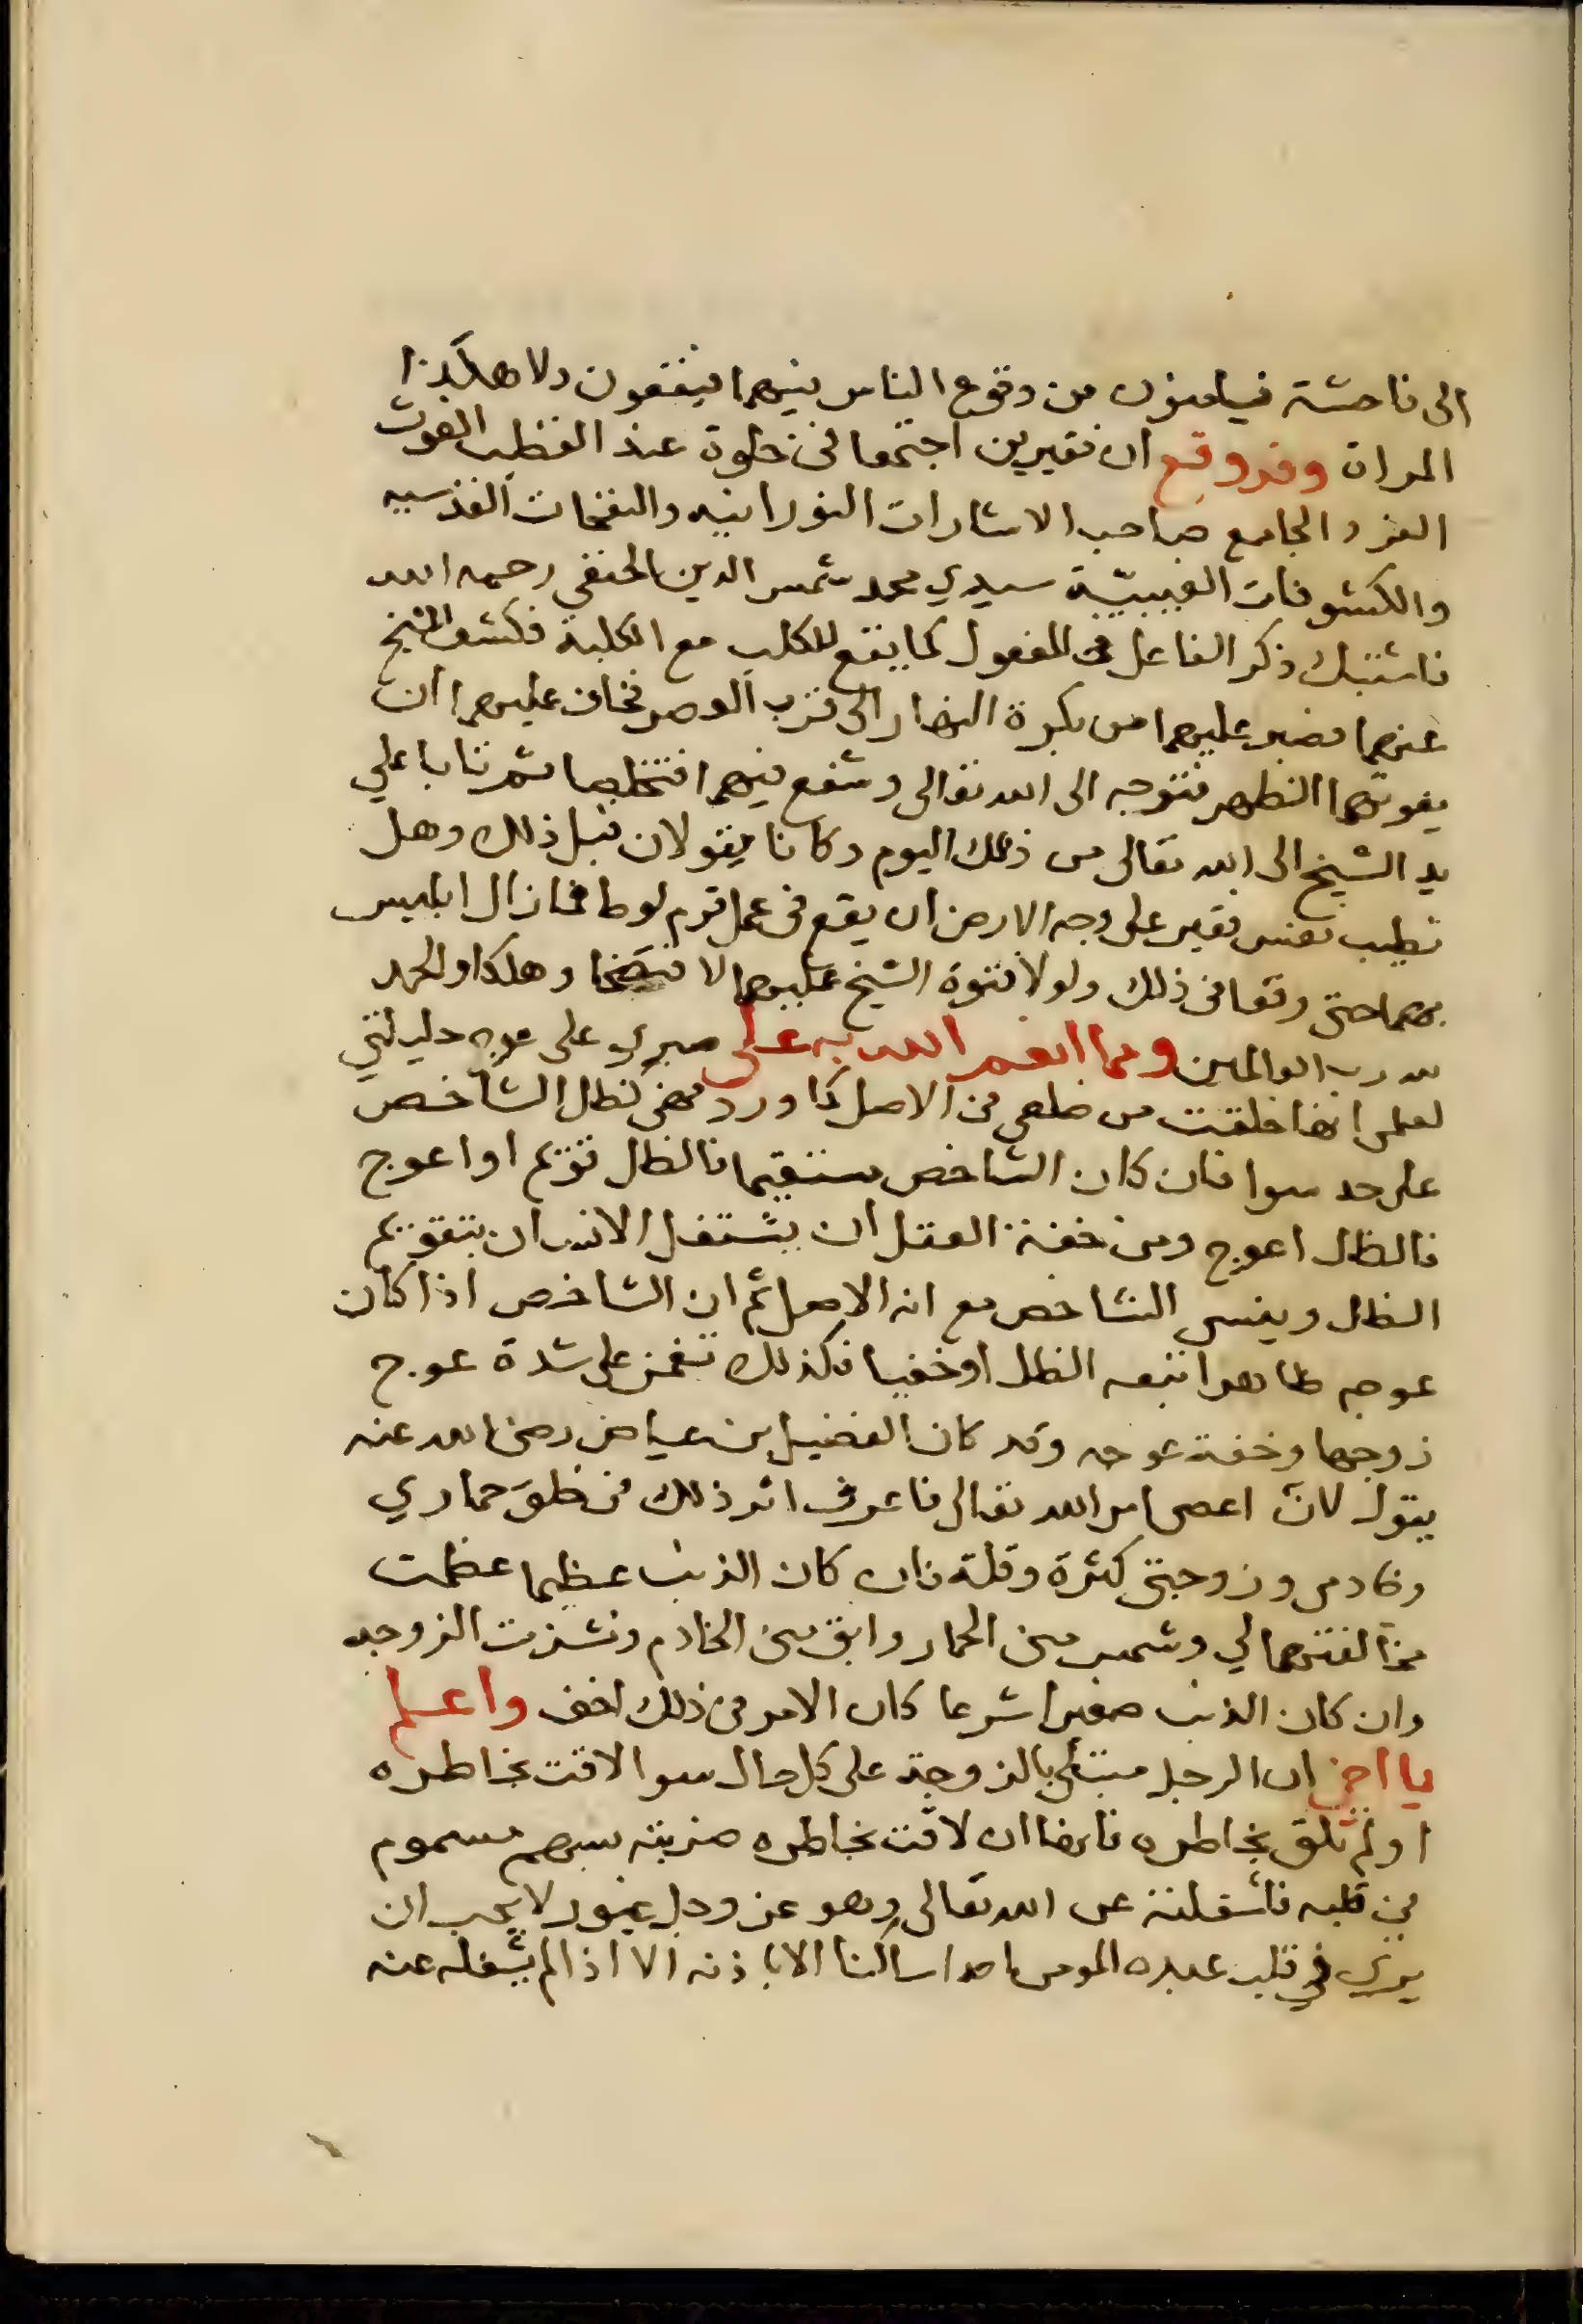 الى فاحشة فيامنون من وقوع الناس فيهما فيقعون ولا هكذا
المراة وقد وقع ان فقيرين اجتمعا في خلوة عند القطب الغوث
الفرد الجامع صاحب الاشارات النورانيه والنفحات القدسيه
والكشوفات الغيبيّة سيدي محمد شمس الدين الحنفي رحمه الله
فاشتبك ذكر الفاعل في المفعول كما يقع للكلب مع الكلبة فكشف الشيخ
عنهما فصبر عليهما من بكرة النهار الى قرب العصر فخاف عليهما ان
يفوتهما الظهر فتوجه الى الله تعالى وشفع فيهما فتخلصا ثم تابا على
يد الشيخ الى الله تعالى من ذلك اليوم وكانا يقولان قبل ذلك وهل
تطيب نفس فقير على وجه الارض ان يقع في عمل قوم لوط فما زال ابليس
بهما حتى وقعا في ذلك ولولا فتوة الشيخ عليهما لا فتضحا وهكذا والحمد
لله رب العالمين ومما انعم الله به على صبري على عوج حليلتي
لعلمي انها خلقت من ضلعي من الاصل كما ورد فهي كظل الشاخص
على حد سوا فان كان الشاخص مستقيما فالظل قويم او اعوج
فالظل اعوج ومن خفة العقل ان يشتغل الانسان بتقويم
الظل وينسى الشاخص مع انه الاصل ثم ان الشاخص اذا كان
عوجه ظاهرا تبعه الظل او خفيا فكذلك تغمز على شدة عوج
زوجها وخفة عوجه وقد كان الفضيل بن عياض رضي الله عنه
يقول لان اعصى امر الله تعالى فاعرف اثر ذلك في خلق حماري
وخادمي وزوجتي كثرة وقلة فان كان الذنب عظيما عظمت
مخالفتهما لي وشمس مني الحمار وابق مني الخادم ونشزت الزوجه
وان كان الذنب صغيرا شرعا كان الامر في ذلك اخف واعلم
يا اخي ان الرجل مبتلى بالزوجة على كل حال سوا لاقت بخاطره
او لم تلق بخاطره فانها ان لاقت بخاطره ضربته بسهم مسموم
في قلبه فاشغلته عن الله تعالى وهو عز وجل غيور لا يحب ان
يرى في قلب عبده المومن احدا ساكنا الا باذنه الا اذا لم يشغله عنه